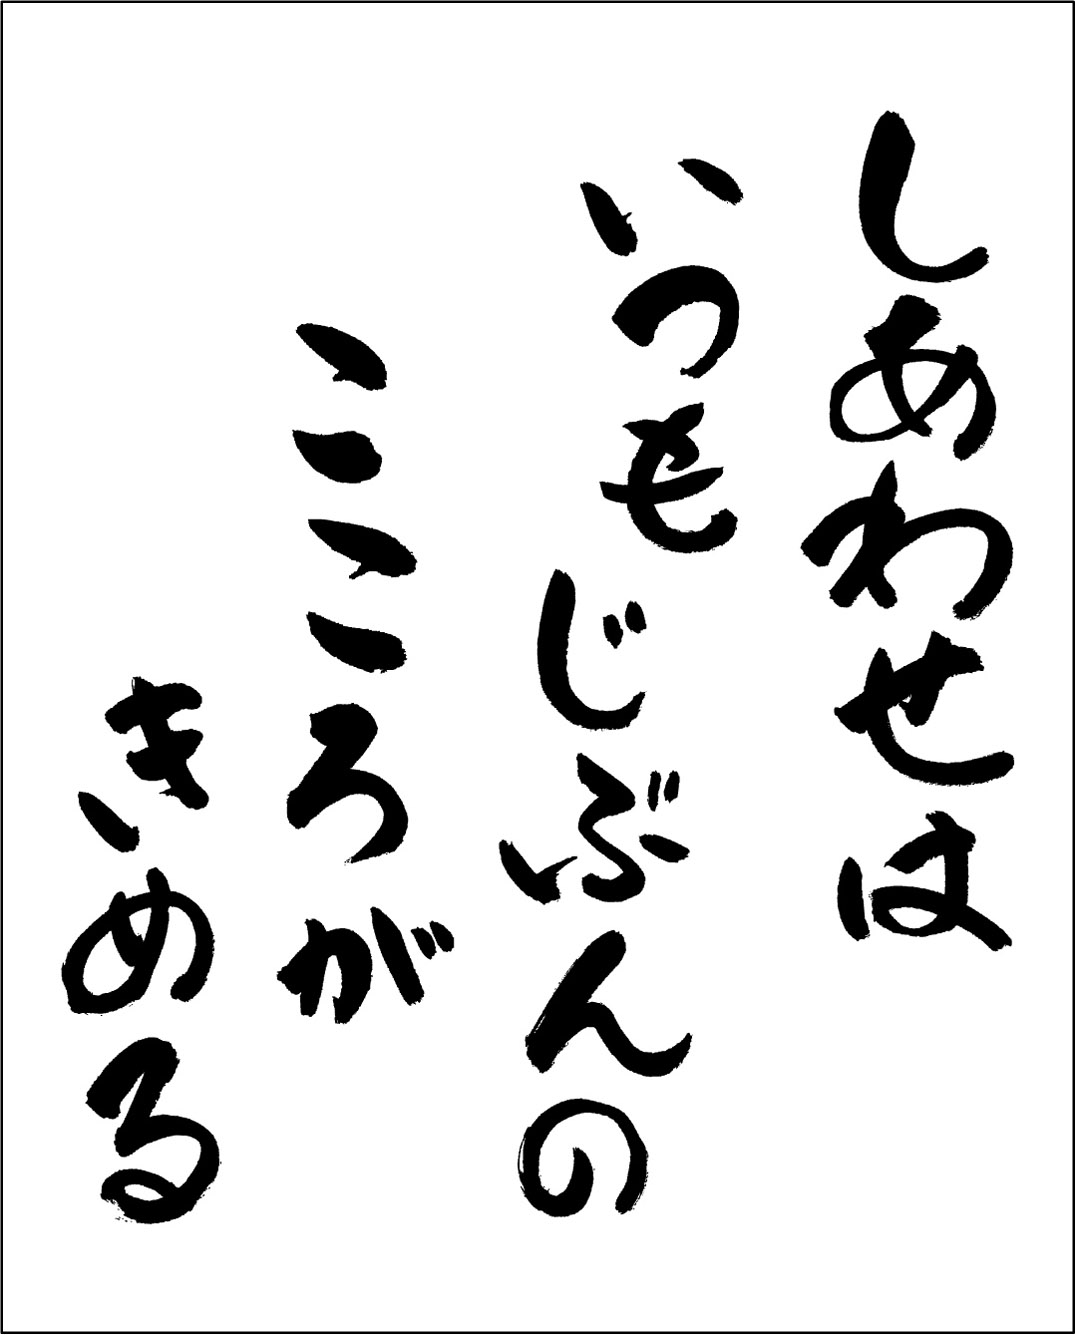 しあわせは
いつも
じぶんの
こころが
きめる